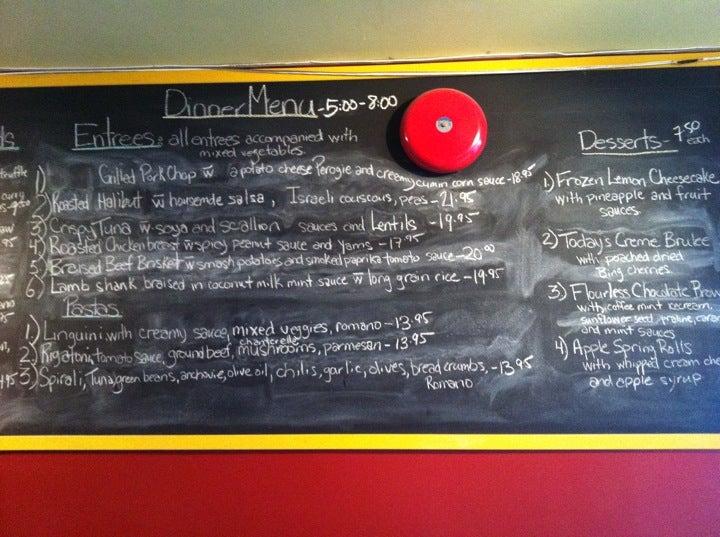 Dinner Menu - 5:00 - 8:00
Entrees: all entrees accompanied with
mixed vegetables.
1) Grilled Pork Chop w a potato cheese Perogie and creamy cumin corn sauce - 18.95
2) Roasted Halibut w housemde salsa, Israeli couscous, peas - 21.95
3) Crispy Tuna w soya and scallion sauces and Lentils - 19.95
4) Roasted Chicken breast w spicy peanut sauce and Yams - 17.95
5) Braised Beef Brisket w smash potatoes and smoked paprika tomato sauce - 20.00
6) Lamb shank braised in coconut milk mint sauce w long grain rice - 19.95
Pastas
1) Linguini with creamy sauce, mixed veggies, romano - 13.95
chanterelle
2) Rigatoni, tomato sauce, ground beef, mushrooms, parmesan - 13.95
3) Spirali, Tuna, green beans, anchovie, olive oil, chilis, garlic, olives, bread crumbs, - 13.95
Romano
Desserts - 7.50
each
1) Frozen Lemon Cheesecake
with pineapple and fruit
sauces.
2) Today's Creme Brulee
with poached dried
Bing cherries.
3) Flourless Chocolate
with coffee mint icecream,
sunflower seed praline,
and mint sauces
4) Apple Spring Rolls
with whipped cream
and apple syrup